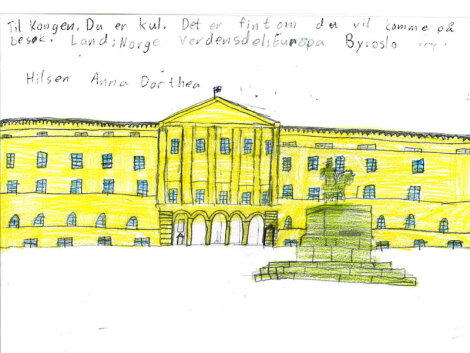 Til Kongen. Du er kul. Det er fint om du vil komme på
besøk. Land: Norge Verdensdel: Europa By: oslo
Hilsen Anna Dorthea